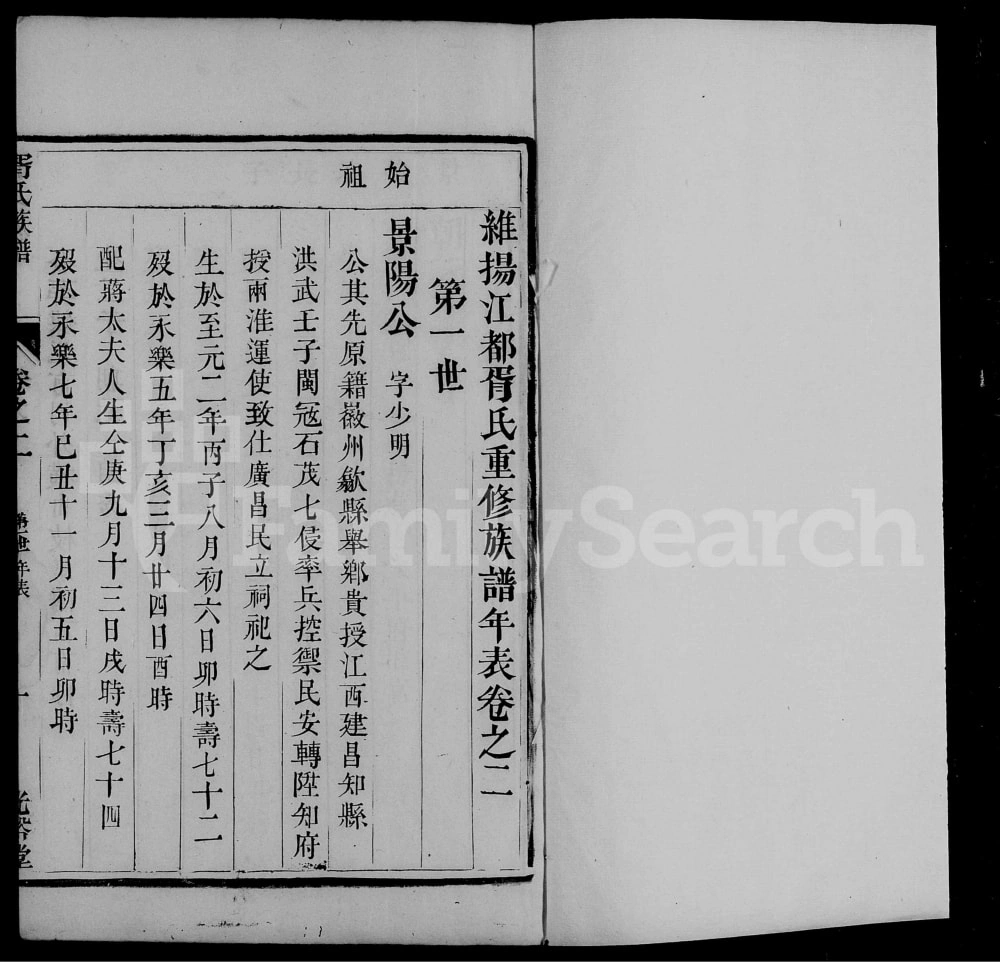 維揚江都胥氏重修族譜年表卷之二
第一世
始祖
景陽公 字少明
公其先原籍徽州歙縣舉鄉貴授江西建昌知縣
洪武壬子閩冦石茂七侵率兵控禦民安轉陞知府
授兩淮運使致仕廣昌民立祠祀之
生於至元二年丙子八月初六日卯時壽七十二
歿於永樂五年丁亥三月廿四日酉時
配蔣太夫人生仝庚九月十三日戌時壽七十四
歿於永樂七年己丑十一月初五日卯時
胥氏族譜 卷之二 第一世年表 一 光裕堂
FamilySearch